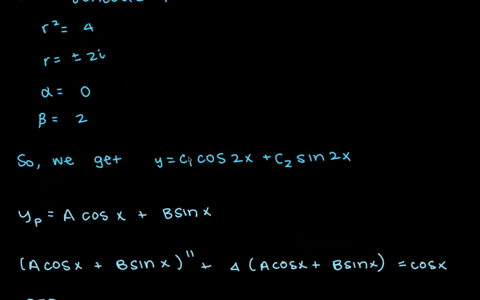 r² = 4
r = ± 2i
α = 0
β = 2
So, we get y = C₁ cos 2x + C₂ sin 2x
yₚ = A cos x + B sin x
(A cos x + B sin x)'' + 4 (A cos x + B sin x) = cos x